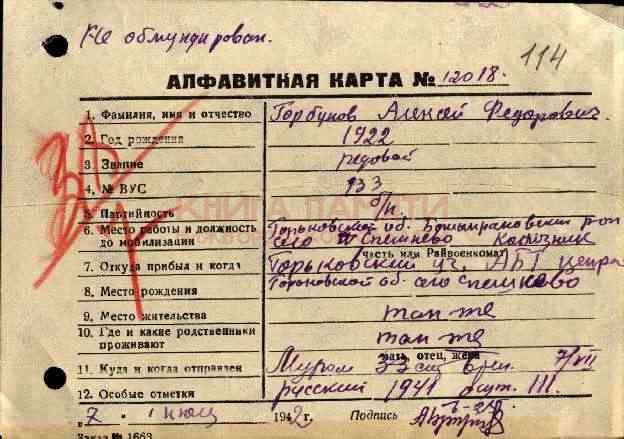 Не обмундирован.
114
АЛФАВИТНАЯ КАРТА № 12018.
1. Фамилия, имя и отчество Горбунов Алексей Федорович.
2. Год рождения 1922
3. Звание редовой
4. № ВУС 133
5. Партийность б/п.
6. Место работы и должность до мобилизации Горьковской об. рон село Спешнево колхозник
часть или Райвоенкомат
7. Откуда прибыл и когда Горьковский уч. АБТ центра
8. Место рождения Горьковской об. село Спешнево
9. Место жительства там же
10. Где и какие родственники проживают там же
мать, отец, жена
11. Куда и когда отправлен Муром 33 7/VII
12. Особые отметки русский 1941
КНИГА ПАМЯТИ
"7" июля 1942 г. Подпись
Заказ № 1663